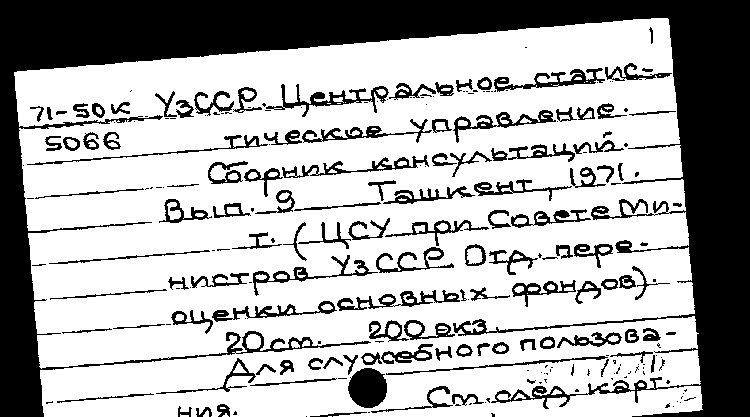 1
71-50к УзССР. Центральное статис-
5066 тическое управление.
Сборник консультаций.
Вып. 9 Ташкент, 1971.
т. (ЦСУ при Совете Ми-
нистров УзССР. Отд. пере-
оценки основных фондов).
20 см. 200 экз.
Для служебного пользова-
ния. См. след. карт.